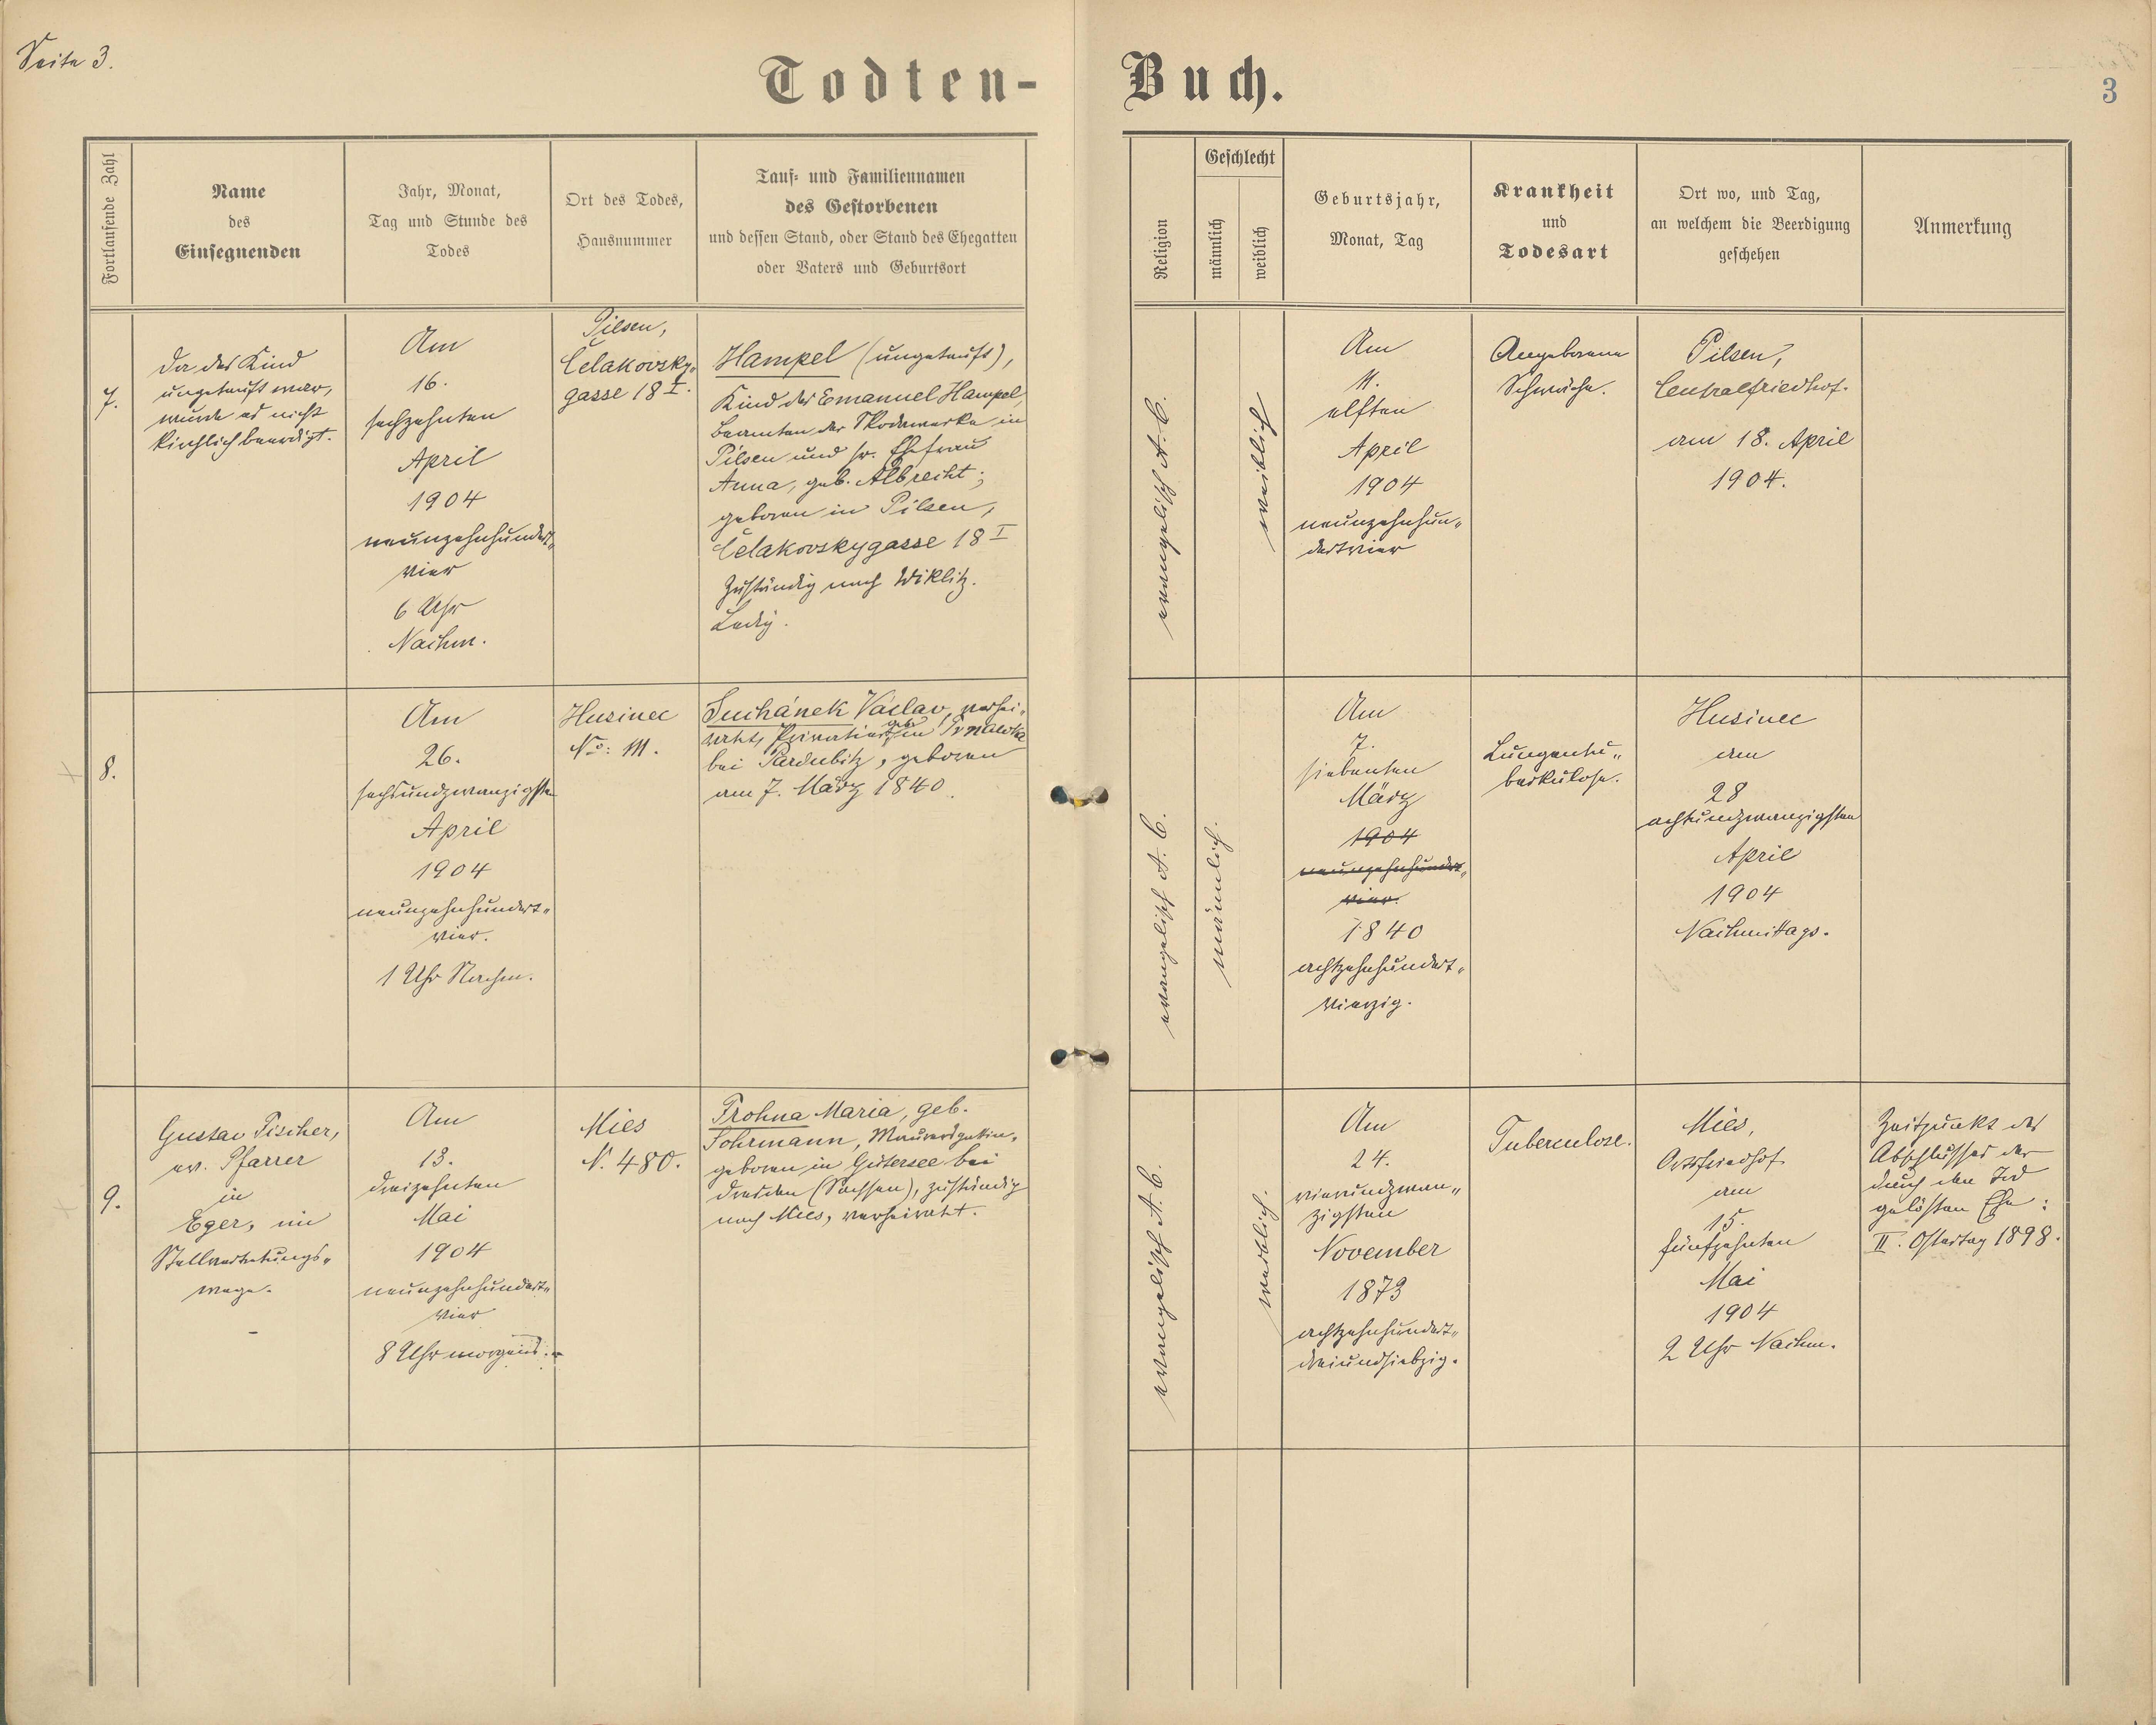 Seite 3.
Todten-Buch.
3
Fortlaufende Zahl
Name
des
Einsegnenden
Jahr, Monat,
Tag und Stunde des
Todes
Ort des Todes,
Hausnummer
Tauf- und Familiennamen
des Gestorbenen
und dessen Stand, oder Stand des Ehegatten
oder Vaters und Geburtsort
Religion
Geschlecht
männlich
weiblich
Geburtsjahr,
Monat, Tag
Krankheit
und
Todesart
Ort wo, und Tag,
an welchem die Beerdigung
geschehen
Anmerkung
7.
Da das Kind
ungetauft war,
wurde es nicht
kirchlich beerdigt.
Am
16.
sechzehnten
April
1904
neunzehnhundert„
vier
6 Uhr
Nachm.
Pilsen,
Čelakovsky„
gasse 18 I.
Hampel (ungetauft),
Kind des Emanuel Hampel,
Beamten der Skodawerke in
Pilsen und sr. Ehefrau
Anna, geb. Albrecht;
geboren in Pilsen,
Čelakovskygasse 18 I
Zuständig nach Wiklitz.
Ledig.
evangelisch A. C.
weiblich
Am
11.
elften
April
1904
neunzehnhun„
dertvier
Angeborene
Schwäche.
Pilsen,
Centralfriedhof.
am 18. April
1904.
8.
Am
26.
sechsundzwanzigsten
April
1904
neunzehnhundert„
vier.
1 Uhr Nachm.
Husinec
No: 111.
Suchánek Václav, verhei„
ratet, Privatier, geb. in Trnawka
bei Pardubitz, geboren
am 7. März 1840.
evangelisch A. C.
männlich.
Am
7.
siebenten
März
1904
neunzehnhundert„
vier.
1840
achtzehnhundert„
vierzig.
Lungentu„
berkulose.
Husinec
am
28
achtundzwanzigsten
April
1904
Nachmittags.
9.
Gustav Fischer,
ev. Pfarrer
in
Eger, im
Stellvertretungs„
wege.
Am
13.
dreizehnten
Mai
1904
neunzehnhundert„
vier
8 Uhr morgens.
Mies
N. 480.
Prohna Maria, geb.
Sohrmann, Maurersgattin,
geboren in Gittersee bei
Dresden (Sachsen), zuständig
nach Mies, verheiratet.
evangelisch A. C.
weiblich.
Am
24.
vierundzwan„
zigsten
November
1873
achtzehnhundert„
dreiundsiebzig.
Tuberculose.
Mies,
Ortsfriedhof
am
15.
fünfzehnten
Mai
1904
2 Uhr Nachm.
Zeitpunkt des
Abschlusses der
durch den Tod
gelösten Ehe:
II. Ostertag 1898.